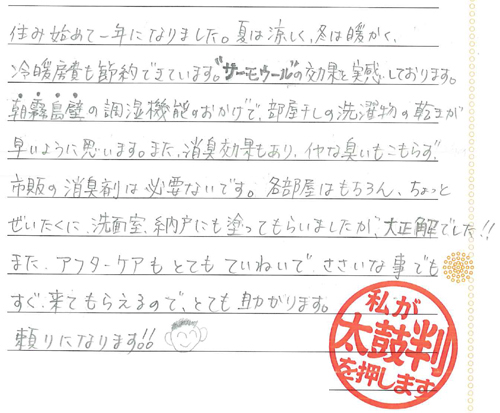 住み始めて一年になりました。夏は涼しく、冬は暖かく、
冷暖房費も節約できています。"サーモウール"の効果を実感しております。
朝霧島壁の調湿機能のおかげで、部屋干しの洗濯物の乾きが
早いように思います。また、消臭効果もあり、イヤな臭いもこもらず、
市販の消臭剤は必要ないです。各部屋はもちろん、ちょっと
ぜいたくに、洗面室、納戸にも塗ってもらいましたが、大正解でした!!
また、アフターケアもとてもていねいで、ささいな事でも
すぐ来てもらえるので、とても助かります。
頼りになります!!
私が
太鼓判
を押します